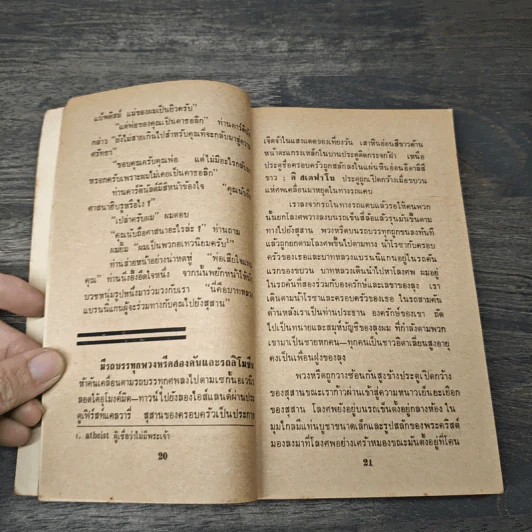 แบ๊พติสม์ แม่ของผมเป็นยิวครับ"
"แต่พ่อของคุณเป็นคาธอลิก" ท่านคาร์ดินัล
กล่าว "ยังไม่สายเกินไปสำหรับคุณที่จะกลับมาสู่ความ
ศรัทธา"
"ขอบคุณครับคุณพ่อ แต่ไม่มีอะไรกลับ
หรอกครับเพราะผมไม่เคยเป็นคาธอลิก"
ท่านคาร์ดินัลมีสีหน้าของใจ "คุณนับถือ
ศาสนายิวรูหรือไง?"
"เปล่าครับผม" ผมตอบ
"คุณนับถือศาสนาอะไรล่ะ?" ท่านถาม
ผมยิ้ม "ผมเป็นพวกอเทวนิยมครับ"
ท่านส่ายหน้าอย่างน่าหดหู่ "พ่อเสียใจแทน
คุณ" ท่านนิ่งอึ้งอึดใจหนึ่ง จากนั้นพยักหน้าให้นัก
บวชหนุ่มรูปหนึ่งมาร่วมวงกับเรา "นี่คือบาทหลวง
แบรนนิแกนผู้จะร่วมทางกับคุณไปยังสุสาน"
มีรถบรรทุกพวงหรีดสองคันและรถลิโมซีน
ห้าคันเคลื่อนตามรถบรรทุกศพลงไปตามเซกั้นอเวนิว
ลอดใต้อุโมงค์มิด—ทาวน์ไปยังลองไอส์แลนด์ผ่านประ
ตูเฟิร์สท์แคลวารี่ สุสานของครอบครัวเป็นประกาย
๑. atheist ผู้เชื่อว่าไม่มีพระเจ้า
20
เจิดจ้าในแสงแดดของเที่ยงวัน เสาหินอ่อนสีขาวด้าน
หน้าตะแกรงเหล็กในบานประตูติดกระจกฝ้า เหนือ
ประตูชื่อครอบครัวถูกสลักลงในแผ่นหินอ่อนอิตาลีสี
ขาว : ดิ สเตฟาโน ประตูถูกเปิดกว้างเมื่อขบวน
แห่ศพเคลื่อนมาหยุดในทางรถแคบ
เราลงจากรถในทางรถแคบแล้วรอให้คนพวก
นั้นยกโลงศพวางลงบนรถเข็นสี่ล้อแล้วรุนมันขึ้นตาม
ทางไปยังสุสาน พวงหรีดบนรถบรรทุกถูกขนลงทันที
แล้วถูกยกตามโลงศพขึ้นไปตามทาง น้าโรซ่ากับครอบ
ครัวของเธอและบาทหลวงแบรนนิแกนอยู่ในรถคัน
แรกของขบวน บาทหลวงเดินนำไปหาโลงศพ ผมอยู่
ในรถคันที่สองร่วมกับองครักษ์และเลขาของลุง เรา
เดินตามน้าโรซ่าและครอบครัวของเธอ ในรถสามคัน
ด้านหลังเราเป็นท่านประธาน องครักษ์ของเขา ถัด
ไปเป็นทนายและสมุห์บัญชีของลุงผม ที่กำลังตามพวก
เขามาเป็นชายหกคน—ทุกคนเป็นชาวอิตาเลี่ยนสูงอายุ
คงเป็นเพื่อนฝูงของลุง
พวงหรีดถูกวางซ้อนกันสูงข้างประตูเปิดกว้าง
ของสุสานขณะเราก้าวผ่านเข้าสู่ความหนาวเย็นยะเยือก
ของสุสาน โลงศพยังอยู่บนรถเข็นตั้งอยู่กลางห้อง ใน
มุมไกลมีแท่นบูชาขนาดเล็กและรูปสลักของพระคริสต์
มองลงมาที่โลงศพอย่างเศร้าหมองขณะมันตั้งอยู่ที่โคน
21